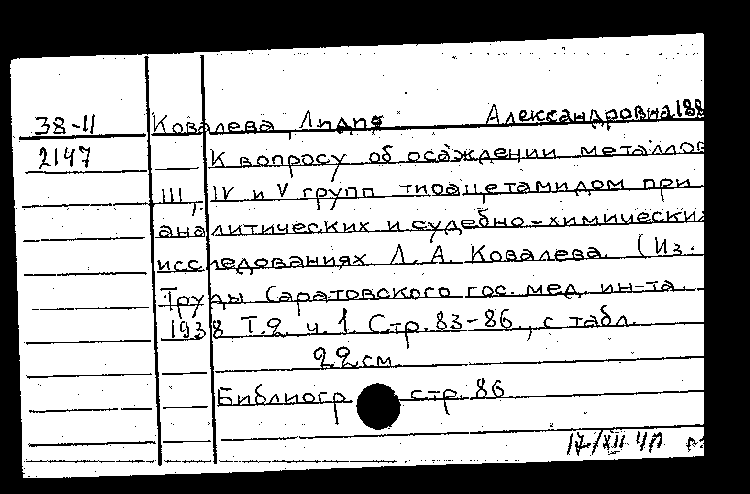 38-11 Ковалева, Лидия Александровна 188
2147 К вопросу об осаждении металлов
III, IV и V групп тиоацетамидом при
аналитических и судебно-химических
исследованиях Л. А. Ковалева. (Из.
Труды Саратовского гос. мед. ин-та.
1938 Т.2. ч. 1. Стр. 83-86., с табл.
22 см.
Библиогр стр. 86
17/XII